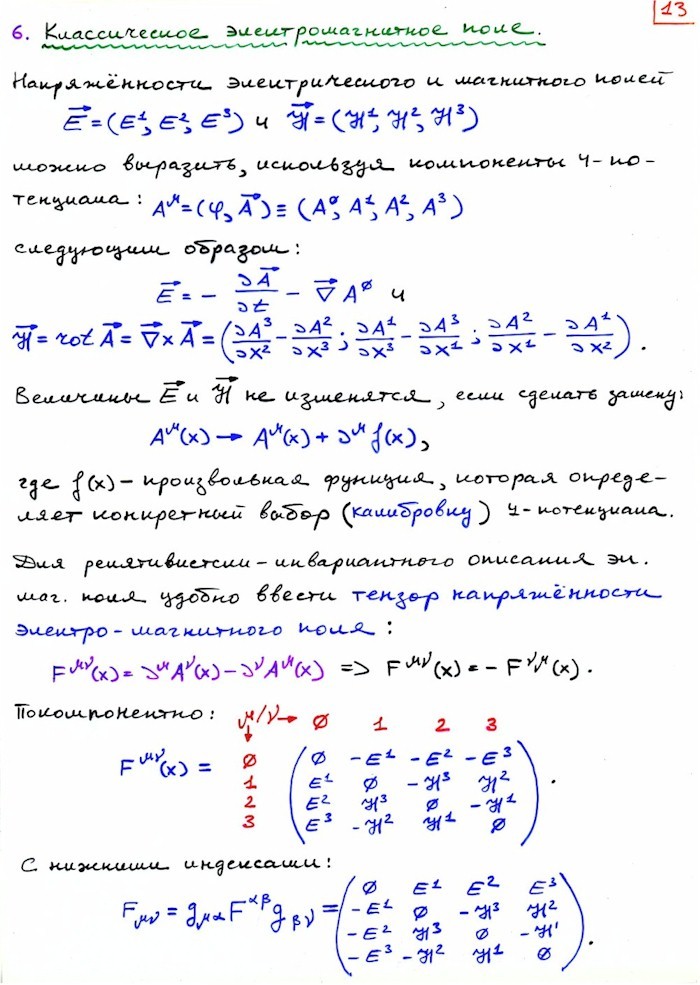 13
6. Классическое электромагнитное поле.
Напряжённости электрического и магнитного полей
E⃗ = (E¹, E², E³) и ℋ⃗ = (ℋ¹, ℋ², ℋ³)
можно выразить, используя компоненты 4-по-
тенциала: Aᵘ = (φ, A⃗) ≡ (A⁰, A¹, A², A³)
следующим образом:
E⃗ = - ∂A⃗/∂t - ∇⃗ A⁰ и
ℋ⃗ = rot A⃗ = ∇⃗ × A⃗ = (∂A³/∂x² - ∂A²/∂x³ ; ∂A¹/∂x³ - ∂A³/∂x¹ ; ∂A²/∂x¹ - ∂A¹/∂x²).
Величины E⃗ и ℋ⃗ не изменятся, если сделать замену:
A^μ(x) → A^μ(x) + ∂^μ f(x),
где f(x) - произвольная функция, которая опреде-
ляет конкретный выбор (калибровку) 4-потенциала.
Для релятивистски-инвариантного описания эл.
маг. поля удобно ввести тензор напряжённости
электро-магнитного поля:
F^μν(x) = ∂^μ A^ν(x) - ∂^ν A^μ(x) => F^μν(x) = - F^νμ(x).
Покомпонентно: μ/ν → 0 1 2 3
F^μν(x) = 0 ( 0 -E¹ -E² -E³
1 E¹ 0 -ℋ³ ℋ²
2 E² ℋ³ 0 -ℋ¹
3 E³ -ℋ² ℋ¹ 0 ).
С нижними индексами:
F_μν = g_μα F^αβ g_βν = ( 0 E¹ E² E³
-E¹ 0 -ℋ³ ℋ²
-E² ℋ³ 0 -ℋ¹
-E³ -ℋ² ℋ¹ 0 ).